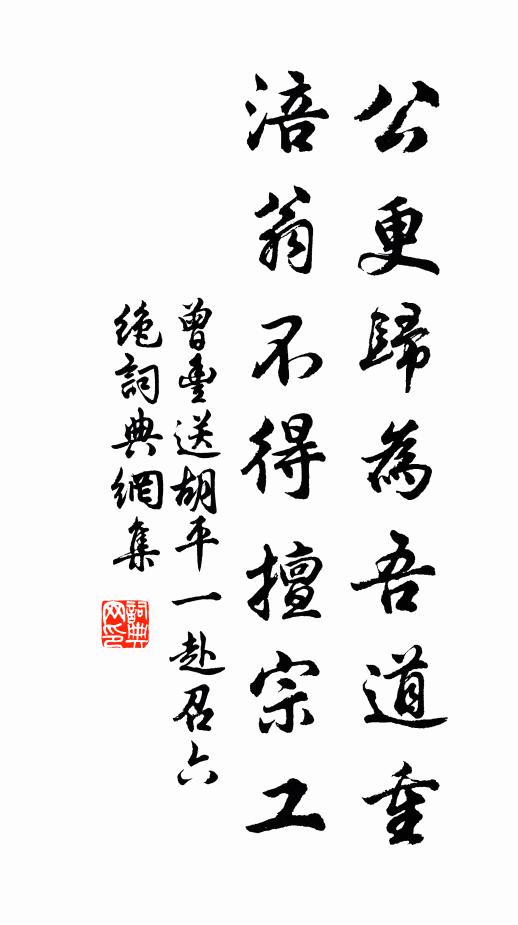 公更歸為吾道重
涪翁不得擅宗工
曾豐送胡平一赴召六
絶詞典網集
詞典网印